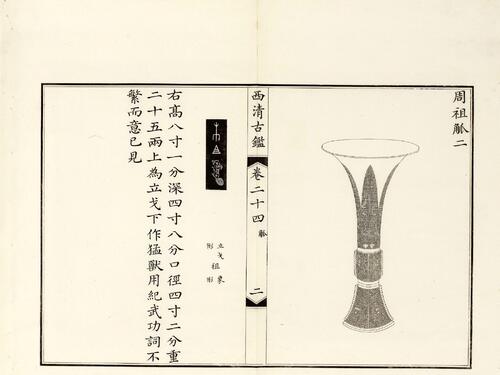 周祖觚二
西清古鑑
卷二十四
觚
二
立戈形
祖
象形
右高八寸一分深四寸八分口徑四寸二分重
二十五兩上為立戈下作猛獸用紀武功詞不
繁而意已見